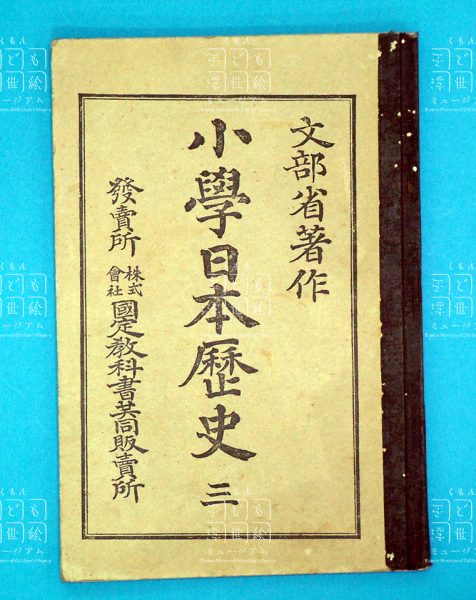 文部省著作
小學日本歴史 三
發賣所 株式會社 國定教科書共同販賣所
くもん
子ども
浮世絵
ミュージアム
Kumon Museum of Children's Ukiyo-e